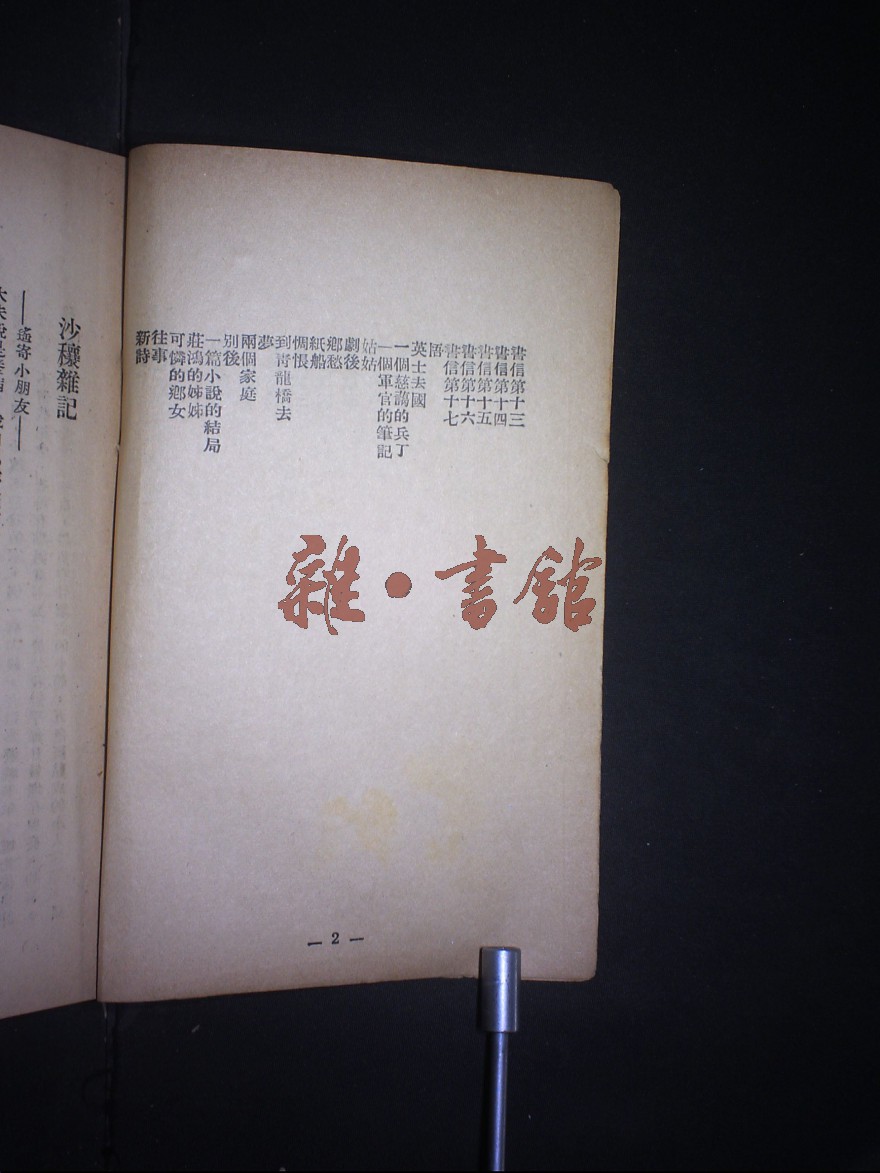 書信第十三
書信第十四
書信第十五
書信第十六
書信第十七
悟
英士去國
一個慈藹的兵丁
一個軍官的筆記
姑姑
劇後
鄉愁
紙船
惆悵
到青龍橋去
夢
兩個家庭
別後
一篇小說的結局
莊鴻的姊姊
可憐的鄉女
往事
新詩
— 2 —
雜·書館
沙穰雜記
——遙寄小朋友——